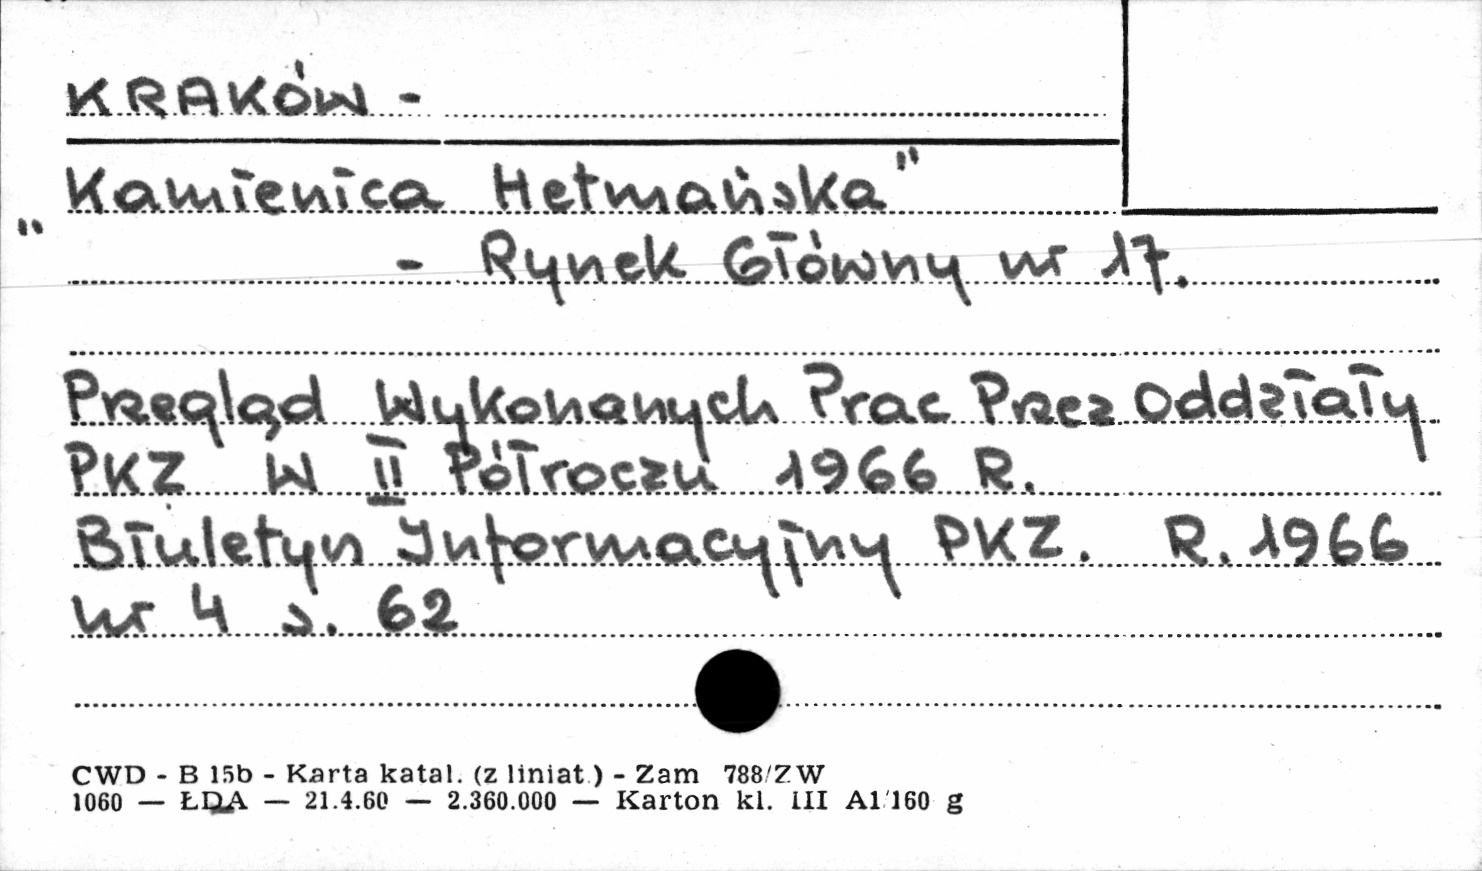 KRAKÓW -
„Kamienica Hetmańska"
- Rynek Główny nr 17.
Przegląd Wykonanych Prac Przez Oddziały
PKZ W II Półroczu 1966 R.
Biuletyn Informacyjny PKZ. R. 1966
nr 4 s. 62
CWD - B 15b - Karta katal. (z liniat.) - Zam 788/ZW
1060 — ŁDA — 21.4.60 — 2.360.000 — Karton kl. III A1/160 g